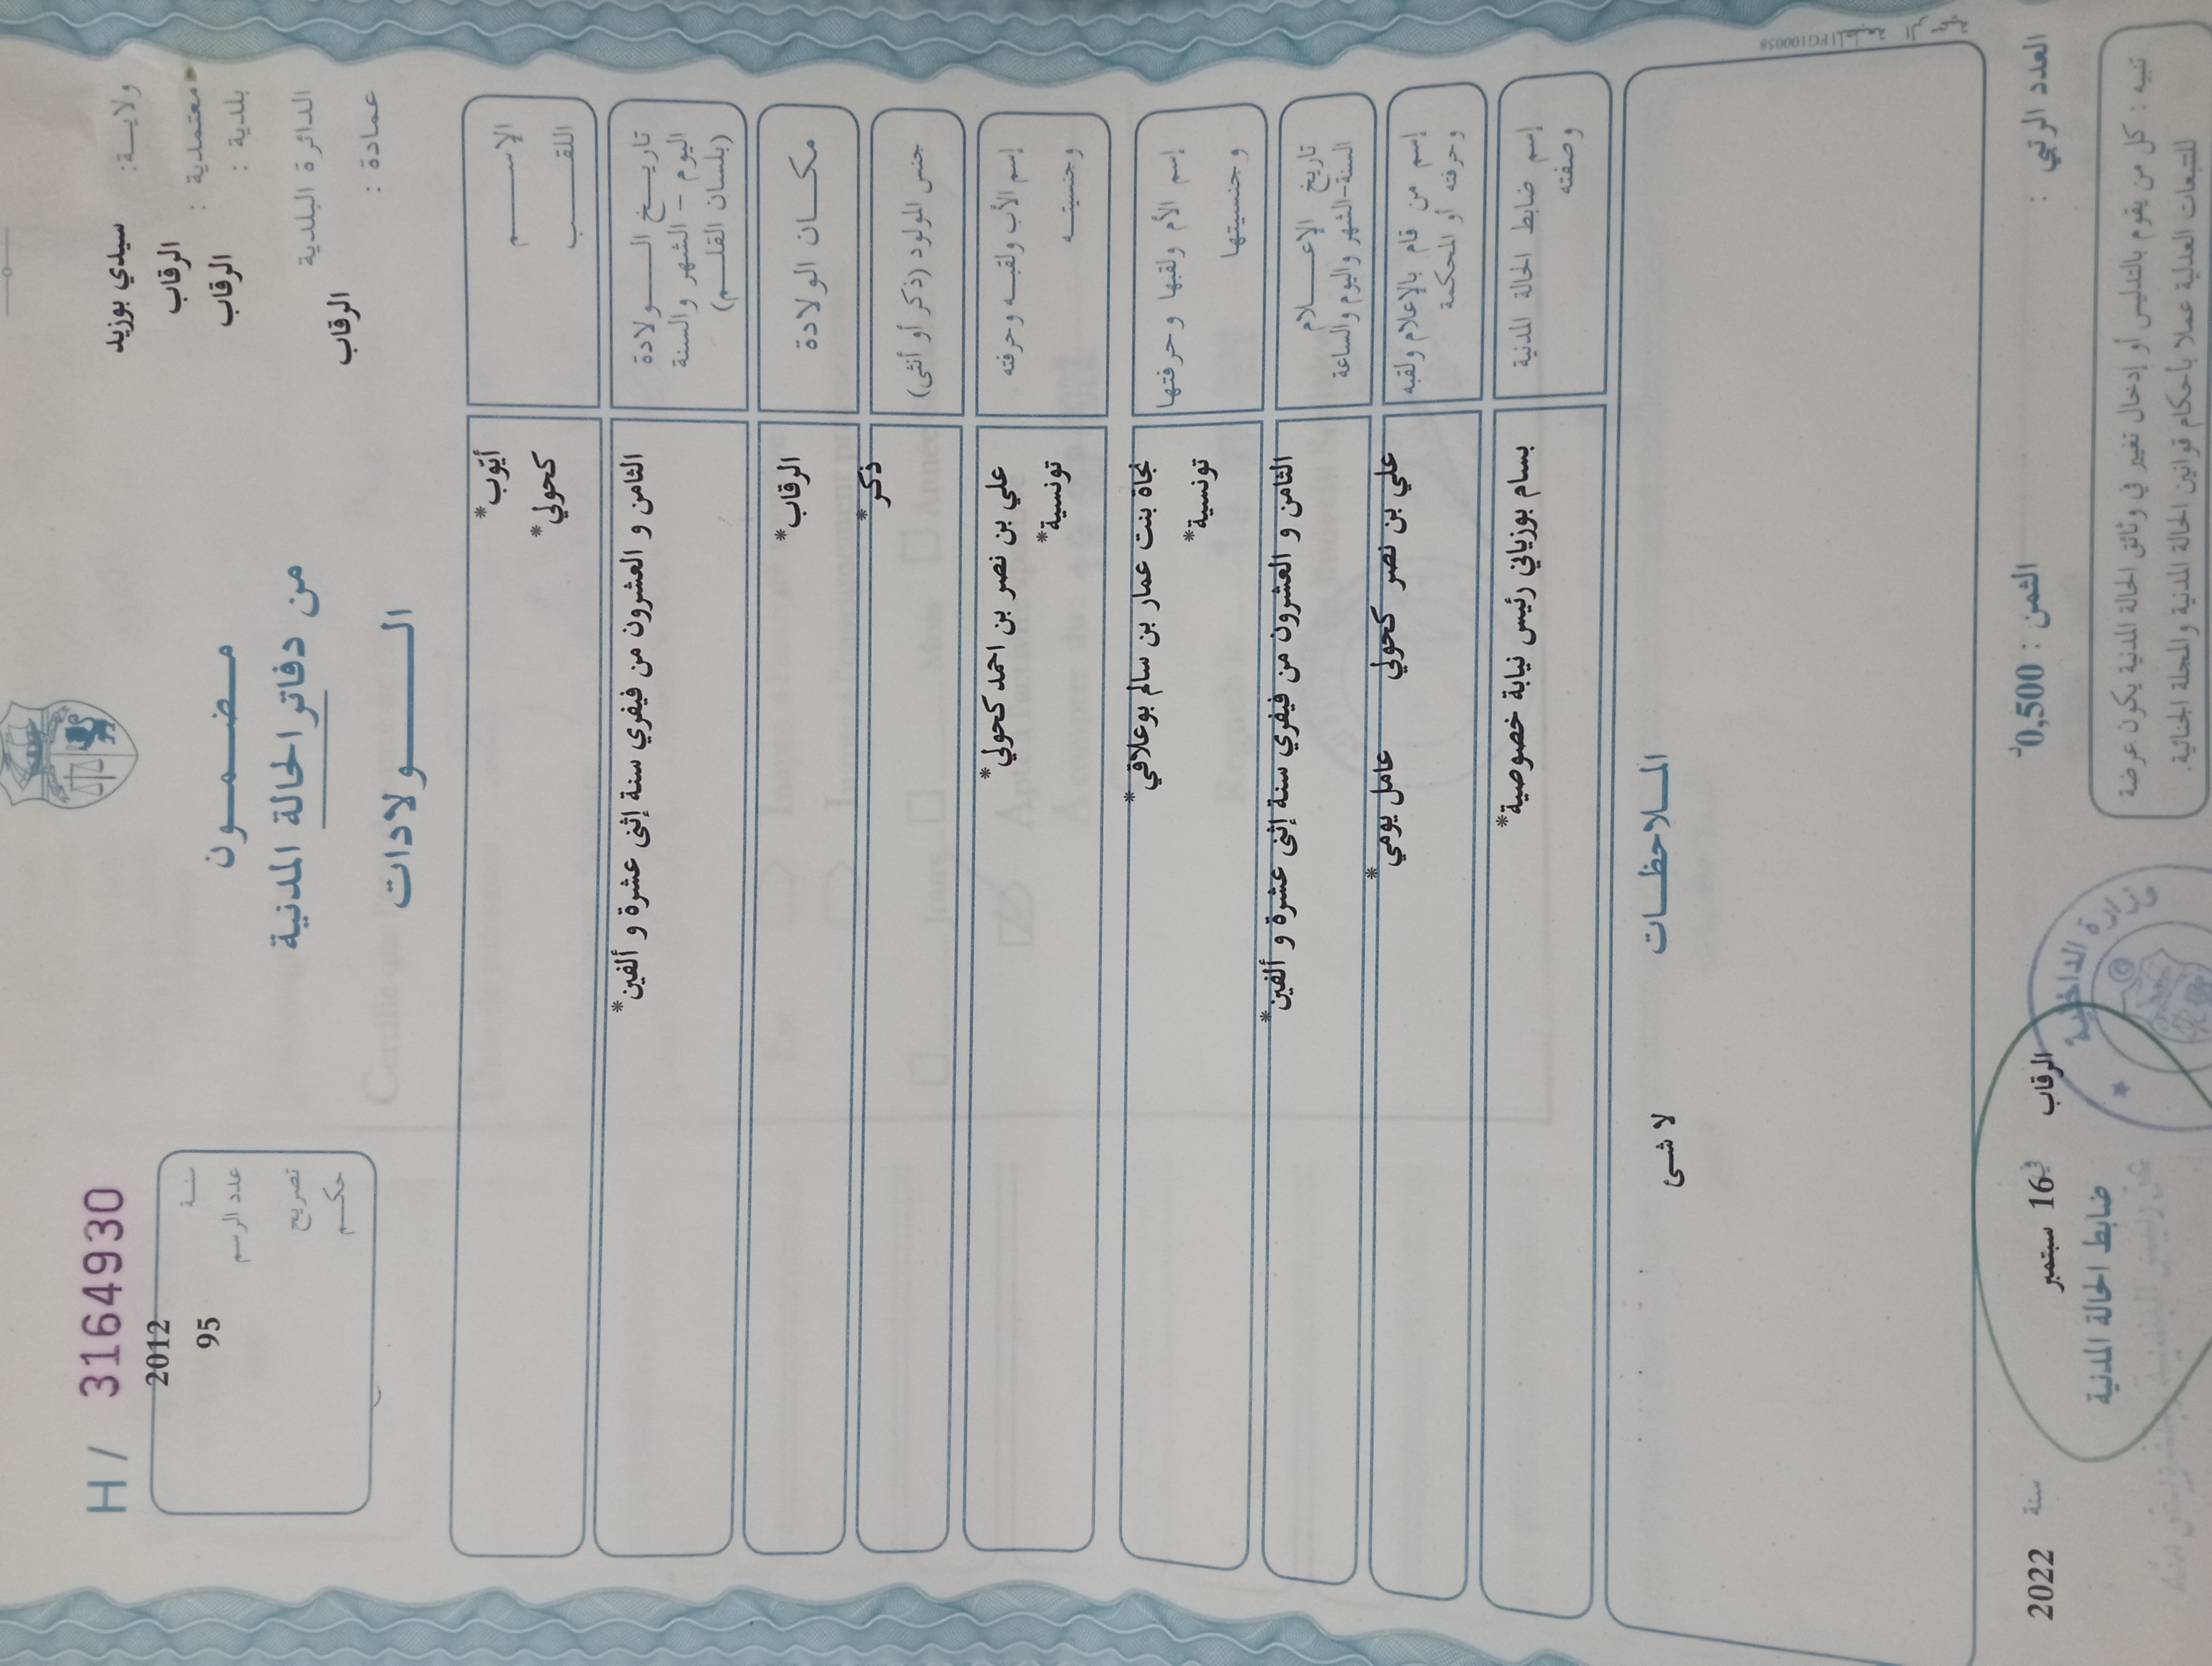 ولايـــة: سيدي بوزيد
معتمدية : الرقاب
بلدية : الرقاب
الدائرة البلدية
الرقاب
عمادة :
مـضـمـون
من دفاتر الحالة المدنية
الـــــولادات
H / 3164930
سنـــة 2012
عدد الرسم 95
تصريح
حكـــم
الإســـــم
أيّوب*
اللقـــــب
كحولي*
تاريـــخ الـــــولادة
اليوم – الشهر والسنة
(بلسان القلـــم)
الثامن و العشرون من فيفري سنة إثنى عشرة و ألفين*
مكـــان الولادة
الرقاب*
جنس المولود (ذكر أو أنثى)
ذكر*
إسم الأب ولقبـــه وحرفته
علي بن نصر بن احمد كحولي*
وجنسيتـــه
تونسية*
إسم الأم ولقبها وحرفتها
نجاة بنت عمار بن سالم بوعلاقي*
وجنسيتها
تونسية*
تاريخ الإعـــــلام
السنة-الشهر واليوم والساعة
الثامن و العشرون من فيفري سنة إثنى عشرة و ألفين*
إسم من قام بالإعلام ولقبه
وحرفته أو المحكمة
علي بن نصر كحولي عامل يومي*
إسم ضابط الحالة المدنية
وصفته
بسام بوزياني رئيس نيابة خصوصية*
المـــلاحظـــات
لا شئ
PG100058
العدد الرتبي :
الثمن : 0,500د
الرقاب في 16 سبتمبر سنة 2022
ضابط الحالة المدنية
وزارة الداخلية
تنبيه : كل من يقوم بالتدليس أو إدخال تغيير في وثائق الحالة المدنية يكون عرضة
للتبعات العدلية عملا بأحكام قوانين الحالة المدنية والمجلة الجنائية.